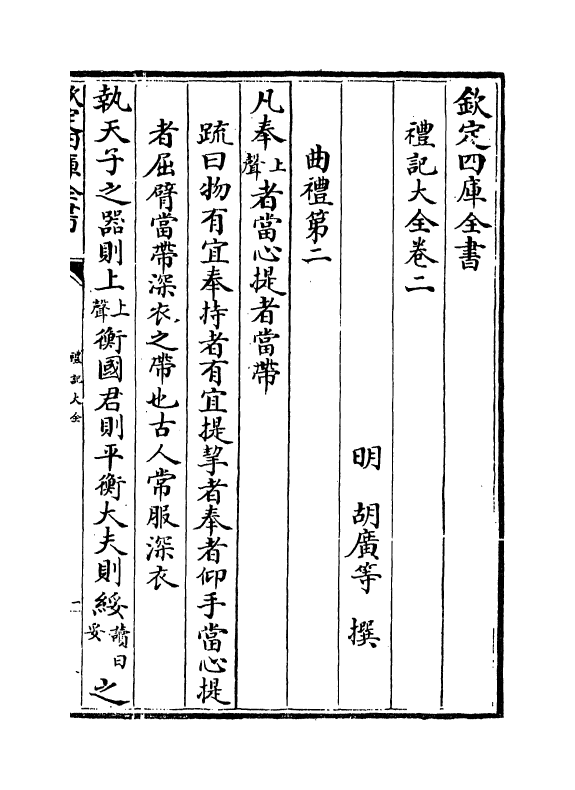 欽定四庫全書
禮記大全卷二
明 胡廣等 撰
曲禮第二
凡奉上聲者當心提者當帶
疏曰物有宜奉持者有宜提挈者奉者仰手當心提
者屈臂當帶深衣之帶也古人常服深衣
執天子之器則上上聲衡國君則平衡大夫則綏讀曰妥之
欽定四庫全書
禮記大全
一